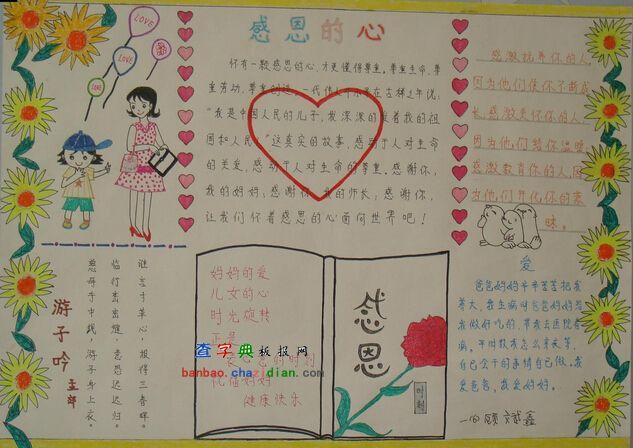 感恩的心
LOVE
LOVE
LOVE
怀有一颗感恩的心,才更懂得尊重。尊重生命、尊
重劳动、尊重创造。一代伟人邓小平在古稀之年说:
“我是中国人民的儿子,我深深的爱着我的祖
国和人民。”这真实的故事,感动于人对生命
的关爱,感动于人对生命的尊重。感谢你,
我的妈妈;感谢你,我的师长;感谢你,
让我们怀着感恩的心面向世界吧!
感激抚养你的人,
因为他们使你不断成
长感激关怀你的人
因为他们给你温暖
感激教育你的人,因
为他们开化你的蒙
昧。
游子吟
孟郊
慈母手中线,游子身上衣。
临行密密缝,意恐迟迟归。
谁言寸草心,报得三春晖。
妈妈的爱
儿女的心
时光旋转
正是
祝福妈妈
健康快乐
感恩
查字典板报网
banbao.chazidian.com
爱
爸爸妈妈辛辛苦苦把我
养大,我生病时爸爸妈妈给
我做好吃的,带我去医院看
病。平时教我怎么来关等,
自己会干的事情自己做。我
爱爸爸,我爱妈妈。